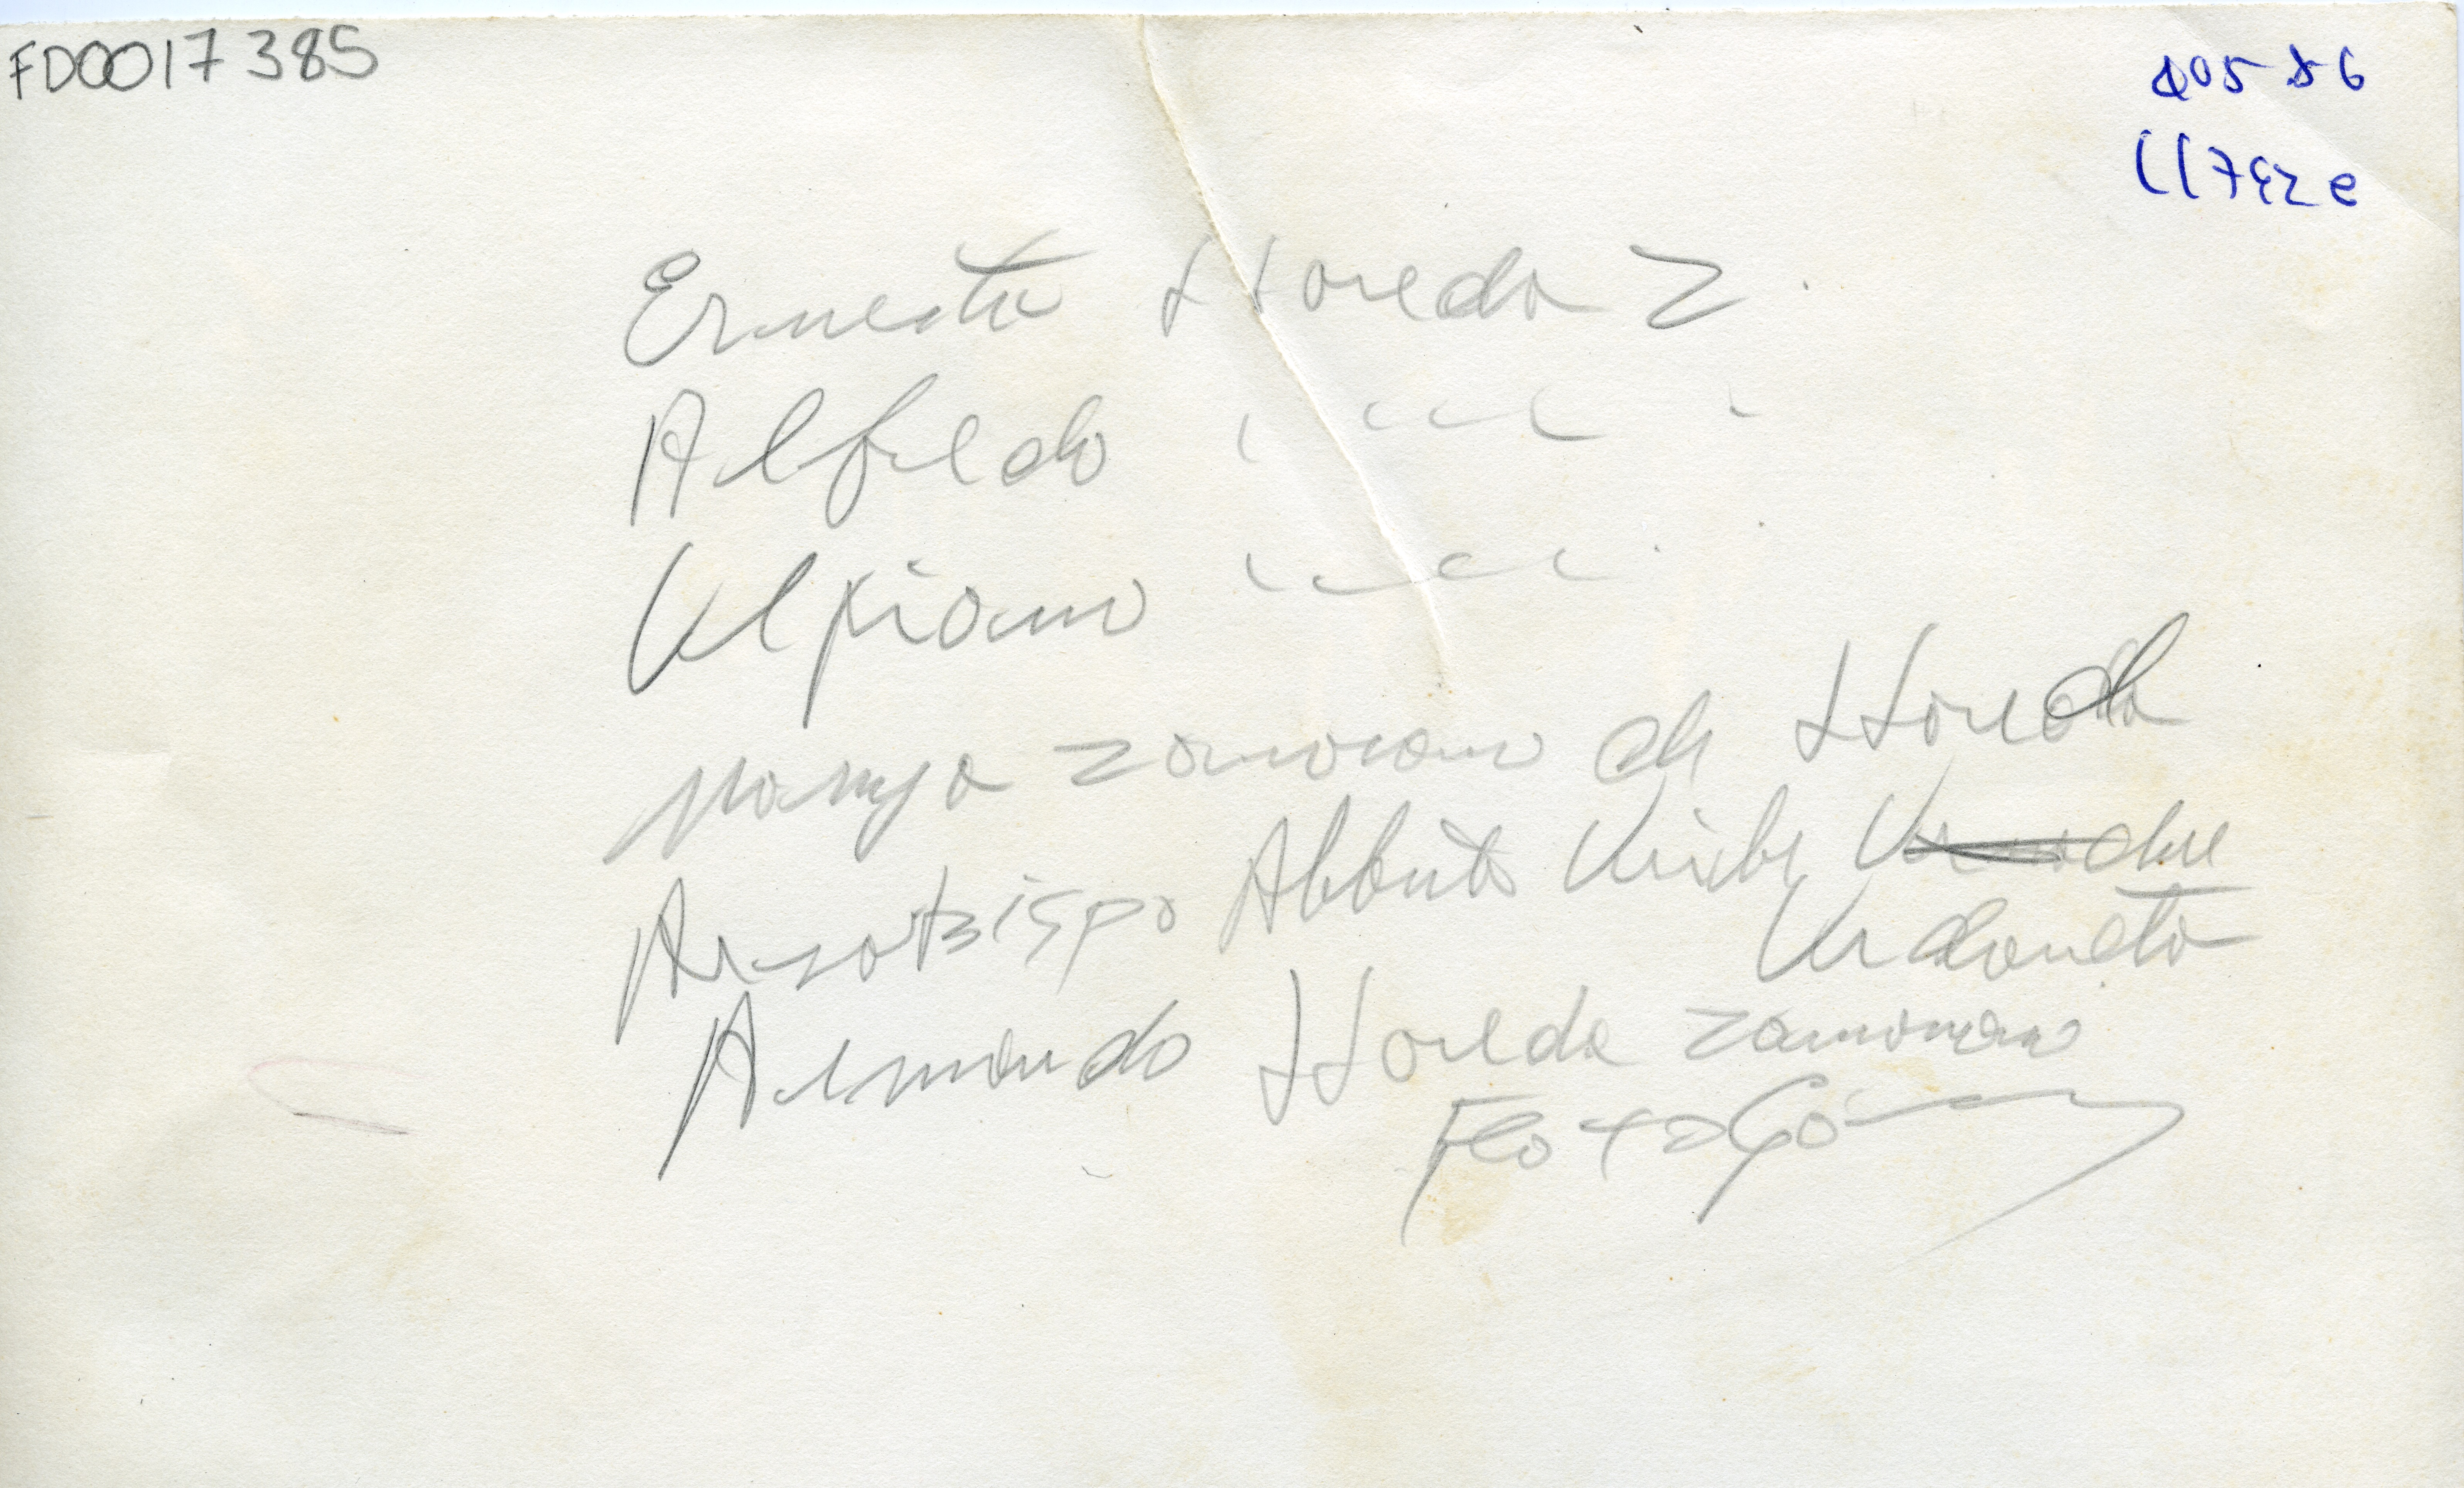 FD0017385
405 86
Ernesto Lloreda Z.
Alfredo " " "
Ulpiano " " "
Maruja Zamorano de Lloreda
Arzobispo Alberto Uribe
Urdaneta
Armando Lloreda Zamorano